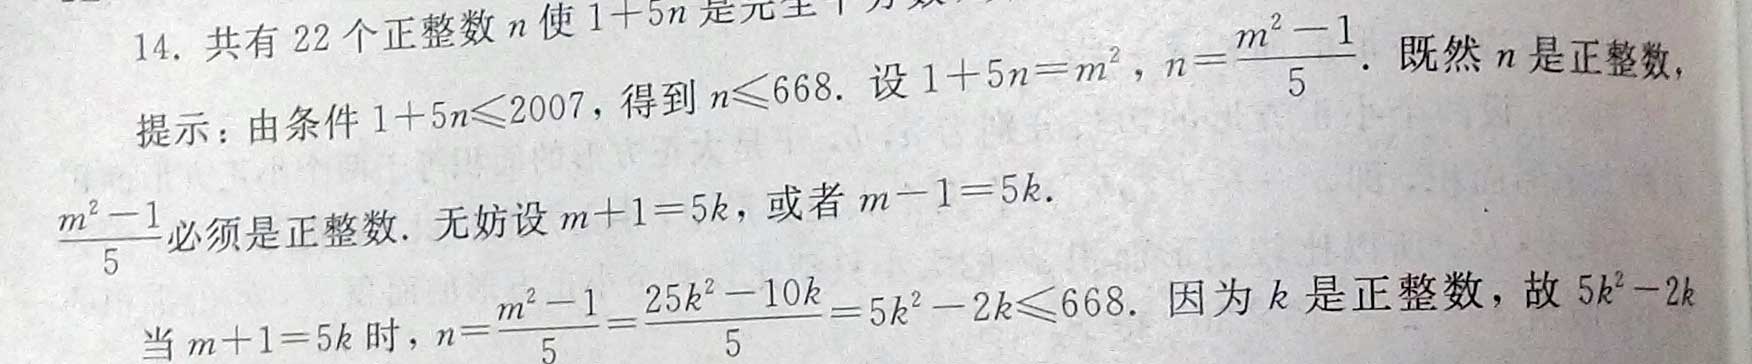 14. 共有 22 个正整数 n 使 1+5n 是完全平方数
提示：由条件 1+5n≤2007，得到 n≤668. 设 1+5n=m²，n=\frac{m²-1}{5}. 既然 n 是正整数，
\frac{m²-1}{5}必须是正整数. 无妨设 m+1=5k，或者 m-1=5k.
当 m+1=5k 时，n=\frac{m²-1}{5}=\frac{25k²-10k}{5}=5k²-2k≤668. 因为 k 是正整数，故 5k²-2k